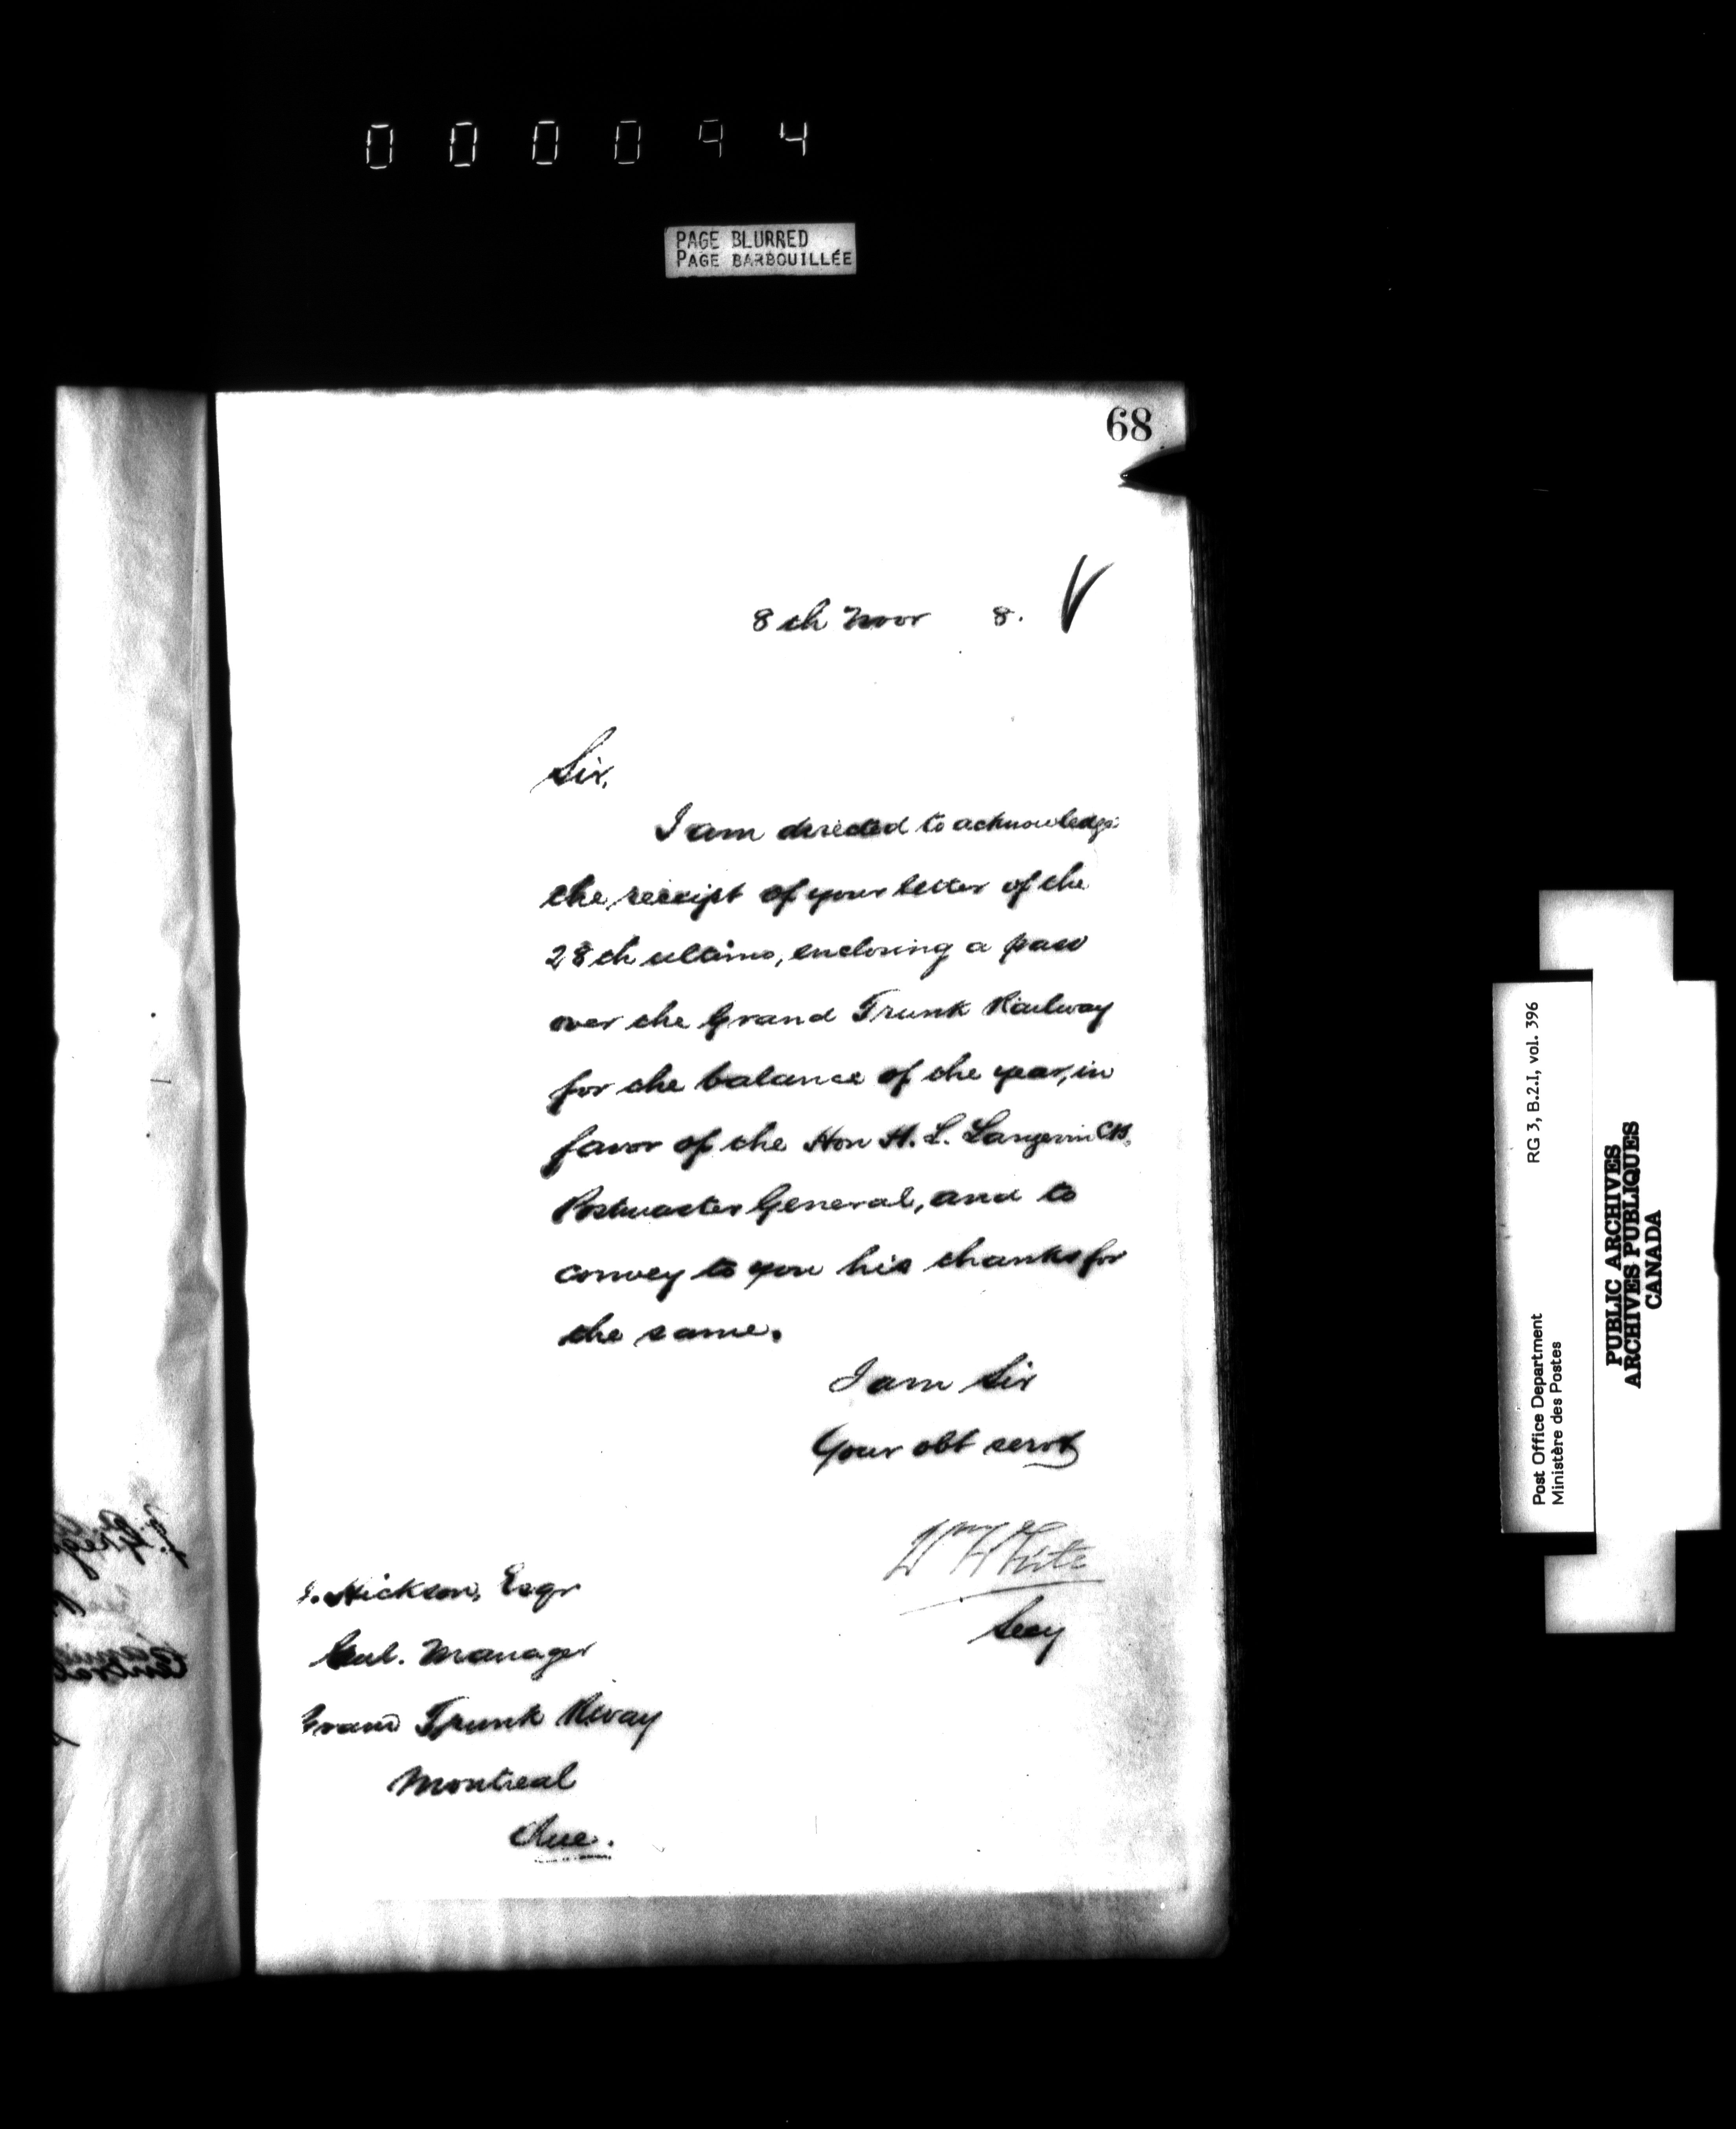 000094
PAGE BLURRED
PAGE BARBOUILLÉE
68
8th Novr 8.
Sir,
I am directed to acknowledge
the receipt of your letter of the
28th ultimo, enclosing a pass
over the Grand Trunk Railway
for the balance of the year, in
favor of the Hon H. L. Langevin CB,
Postmaster General, and to
convey to you his thanks for
the same.
I am Sir
Your obt servt
Wm White
Secy
J. Hickson, Esqr
Genl. Manager
Grand Trunk Rway
Montreal
Que.
RG 3, B.2.1, vol. 396
Post Office Department
Ministère des Postes
PUBLIC ARCHIVES
ARCHIVES PUBLIQUES
CANADA